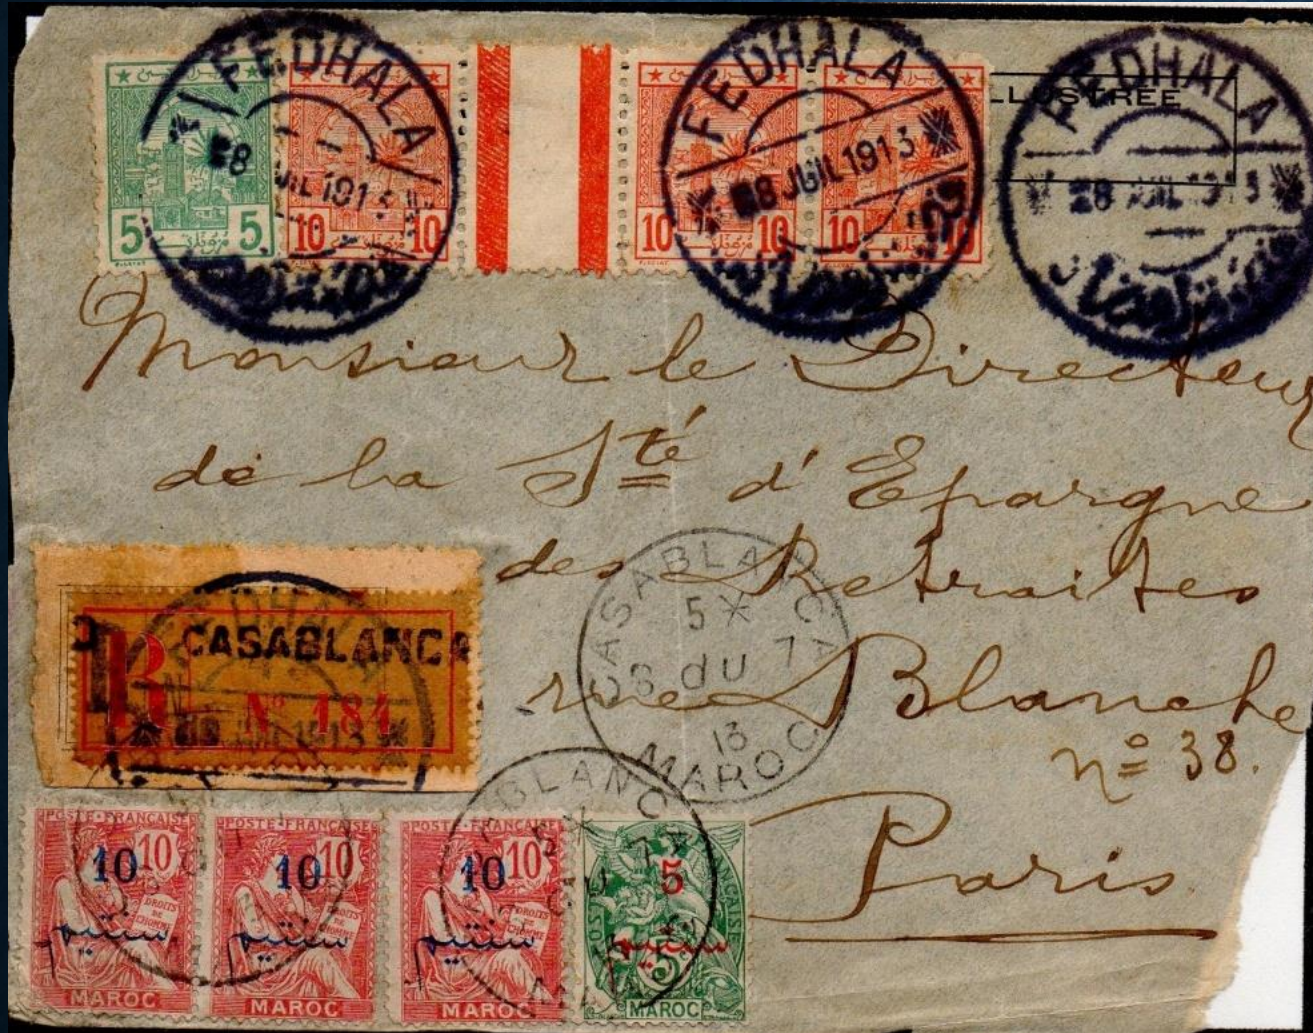 FEDHALA
28 JUIL 1913
FEDHALA
28 JUIL 1913
FEDHALA
28 JUIL 1913
LLUSTRÉE
5 5
10 10
10 10
10 10
Monsieur le Directeur
de la Sté d'Epargne
des Retraites
rue Blanche
n° 38.
Paris
CASABLANCA
5 *
8 du 7
13
MAROC
R CASABLANCA
N° 184
POSTE FRANÇAISE
10 10
سنتيم
DROITS DE L'HOMME
MAROC
POSTE FRANÇAISE
10 10
سنتيم
DROITS DE L'HOMME
MAROC
POSTE FRANÇAISE
10 10
سنتيم
DROITS DE L'HOMME
MAROC
5
سنتيم
5
MAROC